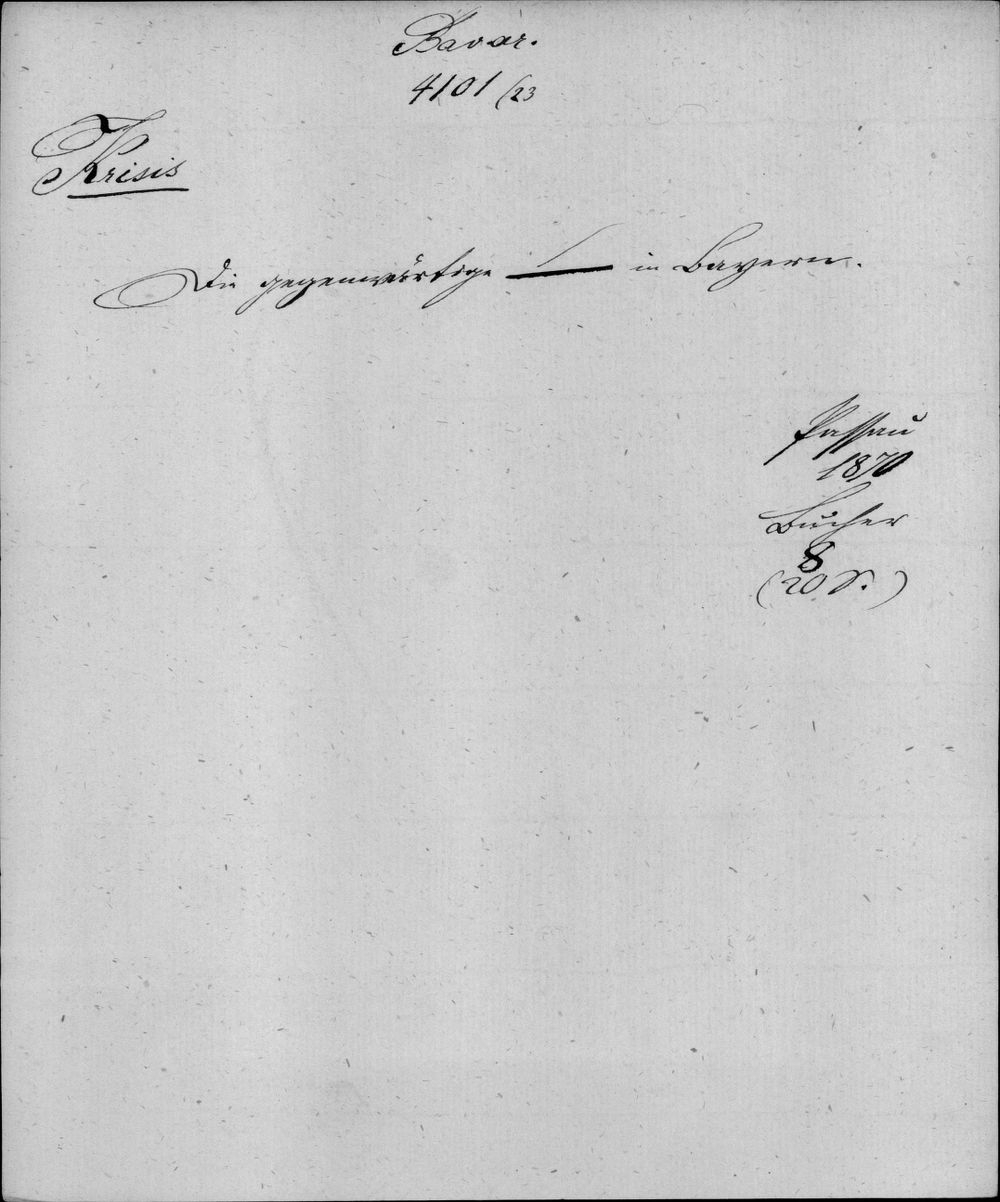 Bavar.
4101 (23
Krisis
Die gegenwärtige — in Bayern.
Passau
1870
Bucher
8
(20 S.)